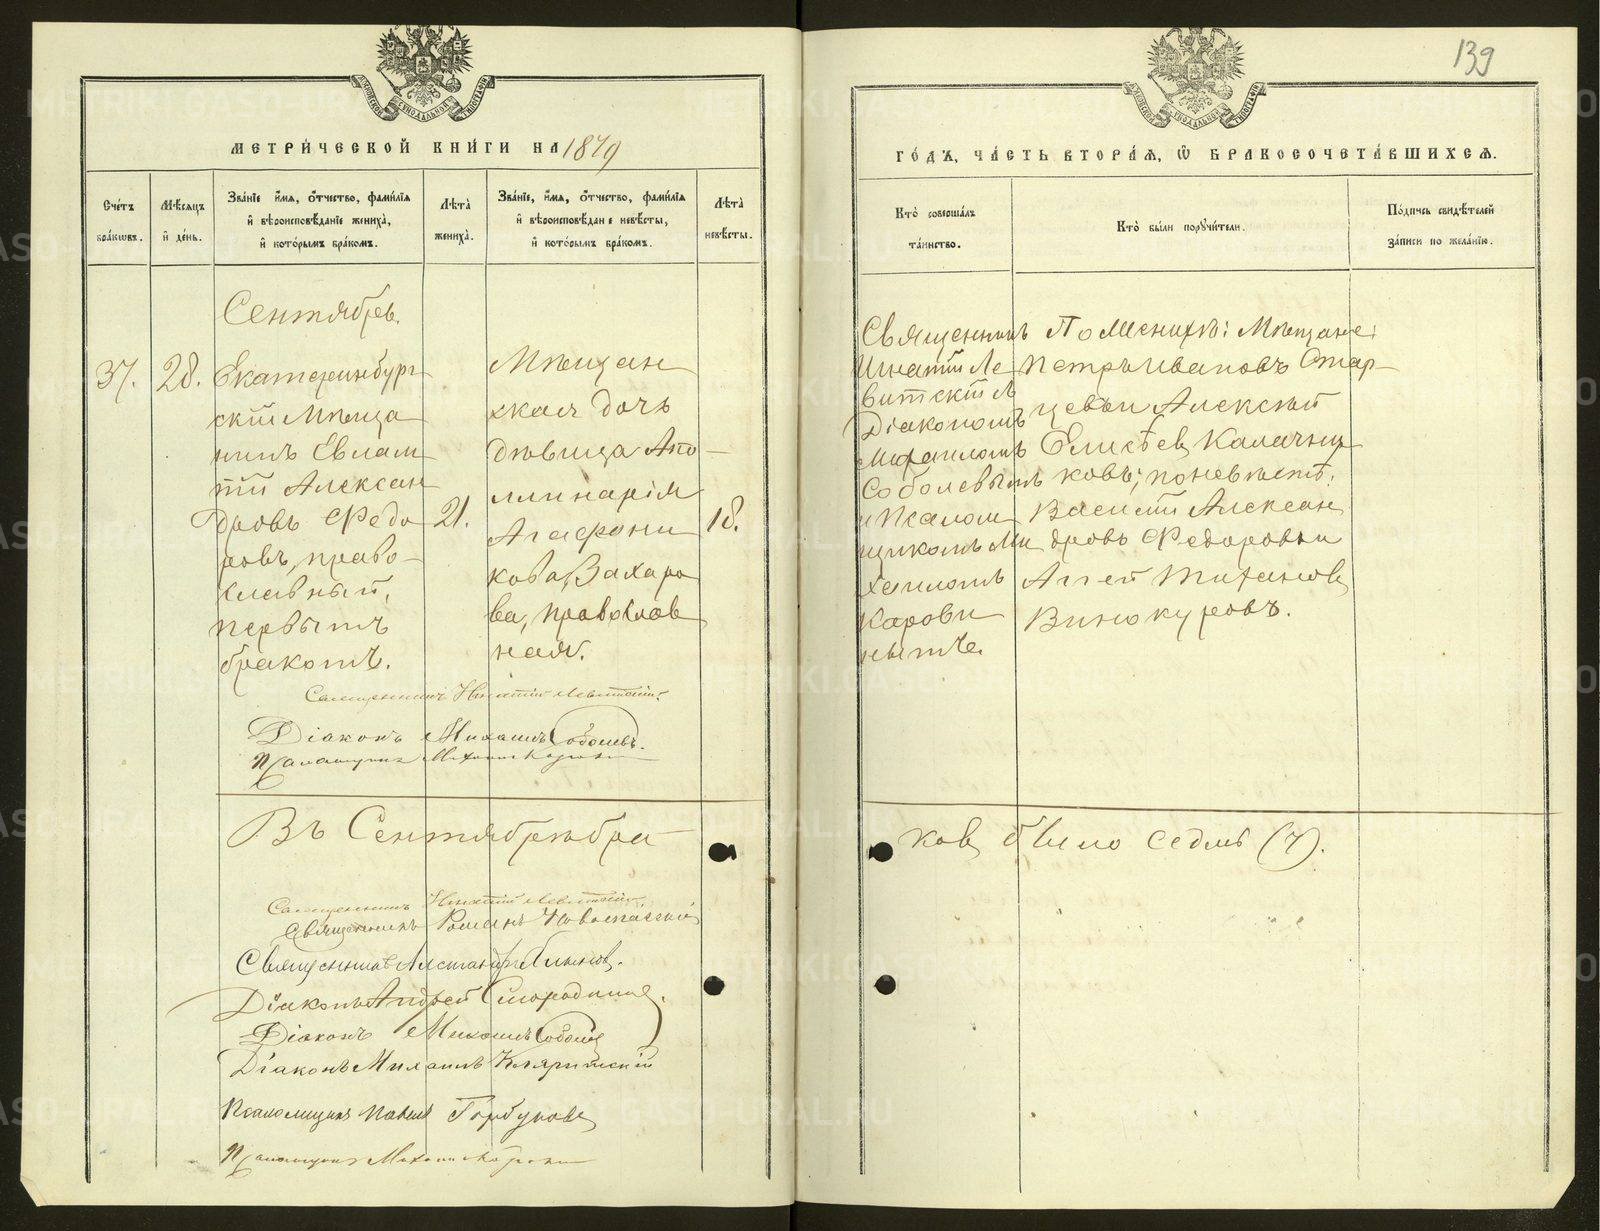 139
МЕТРИ́ЧЕСКОЙ КНИ́ГИ НА 1879
ГО́ДЪ, ЧА́СТЬ ВТОРА́Я, Ѽ БРАКОСОЧЕТА́ВШИХСЯ.
Сче́тъ
бра́ковъ.
Мѣ́сяцъ
и де́нь.
Зва́нїе и҆́мя, ѻ҆́тчество, фами́лїя
и҆ вѣроисповѣ́данїе жениха̀,
и҆ кото́рымъ бра́комъ.
Лѣ́та
жениха̀.
Зва́нїе, и҆́мя, ѻ҆́тчество, фами́лїя
и҆ вѣроисповѣ́дан е невѣ́сты,
и҆ кото́рымъ бра́комъ.
Лѣ́та
невѣ́сты.
Кто̀ соверша́лъ
та́инство.
Кто̀ бы́ли порꙋчи́тели.
По́дпись свидѣ́телей
за́писи по жела́нїю.
Сентябрь.
37.
28.
Екатеринбург
скій Мѣща
нинъ Евлам
пій Алексан
дровъ Ѳедо
ровъ, право-
славный,
первымъ
бракомъ.
21.
Мѣщан
ская дочь
дѣвица Апо-
ллинарія
Агафони
кова Захаро
ва, православ
ная.
18.
Священникъ
Игнатій Ле
витскій
Діакономъ
Михаиломъ
Соболевымъ
и Псалом
щикомъ Ми
хаиломъ
Карови
нымъ.
По женихѣ: Мѣщане:
Петръ Ивановъ Стар-
цевъ и Алексѣй
Елисѣевъ Калачни
ковъ; по невѣстѣ,
Василій Алексан
дровъ Ѳедоровъ и
Аггей Титановъ
Винокуровъ.
Священникъ Игнатій Левитскій.
Діаконъ Михаилъ Соболевъ.
Псаломщикъ Михаилъ Каровинъ
Въ Сентябрѣ бра
ковъ было седмь (7).
Священникъ Игнатій Левитскій
Священникъ Романъ Новоспасскій
Священникъ Александръ
Діаконъ Андрей Смородинцевъ.
Діаконъ Михаилъ Соболевъ
Діаконъ Михаилъ
Псаломщикъ Павелъ Горбуновъ
Псаломщикъ Михаилъ Каровинъ
METRIKI.GASO-URAL.RU